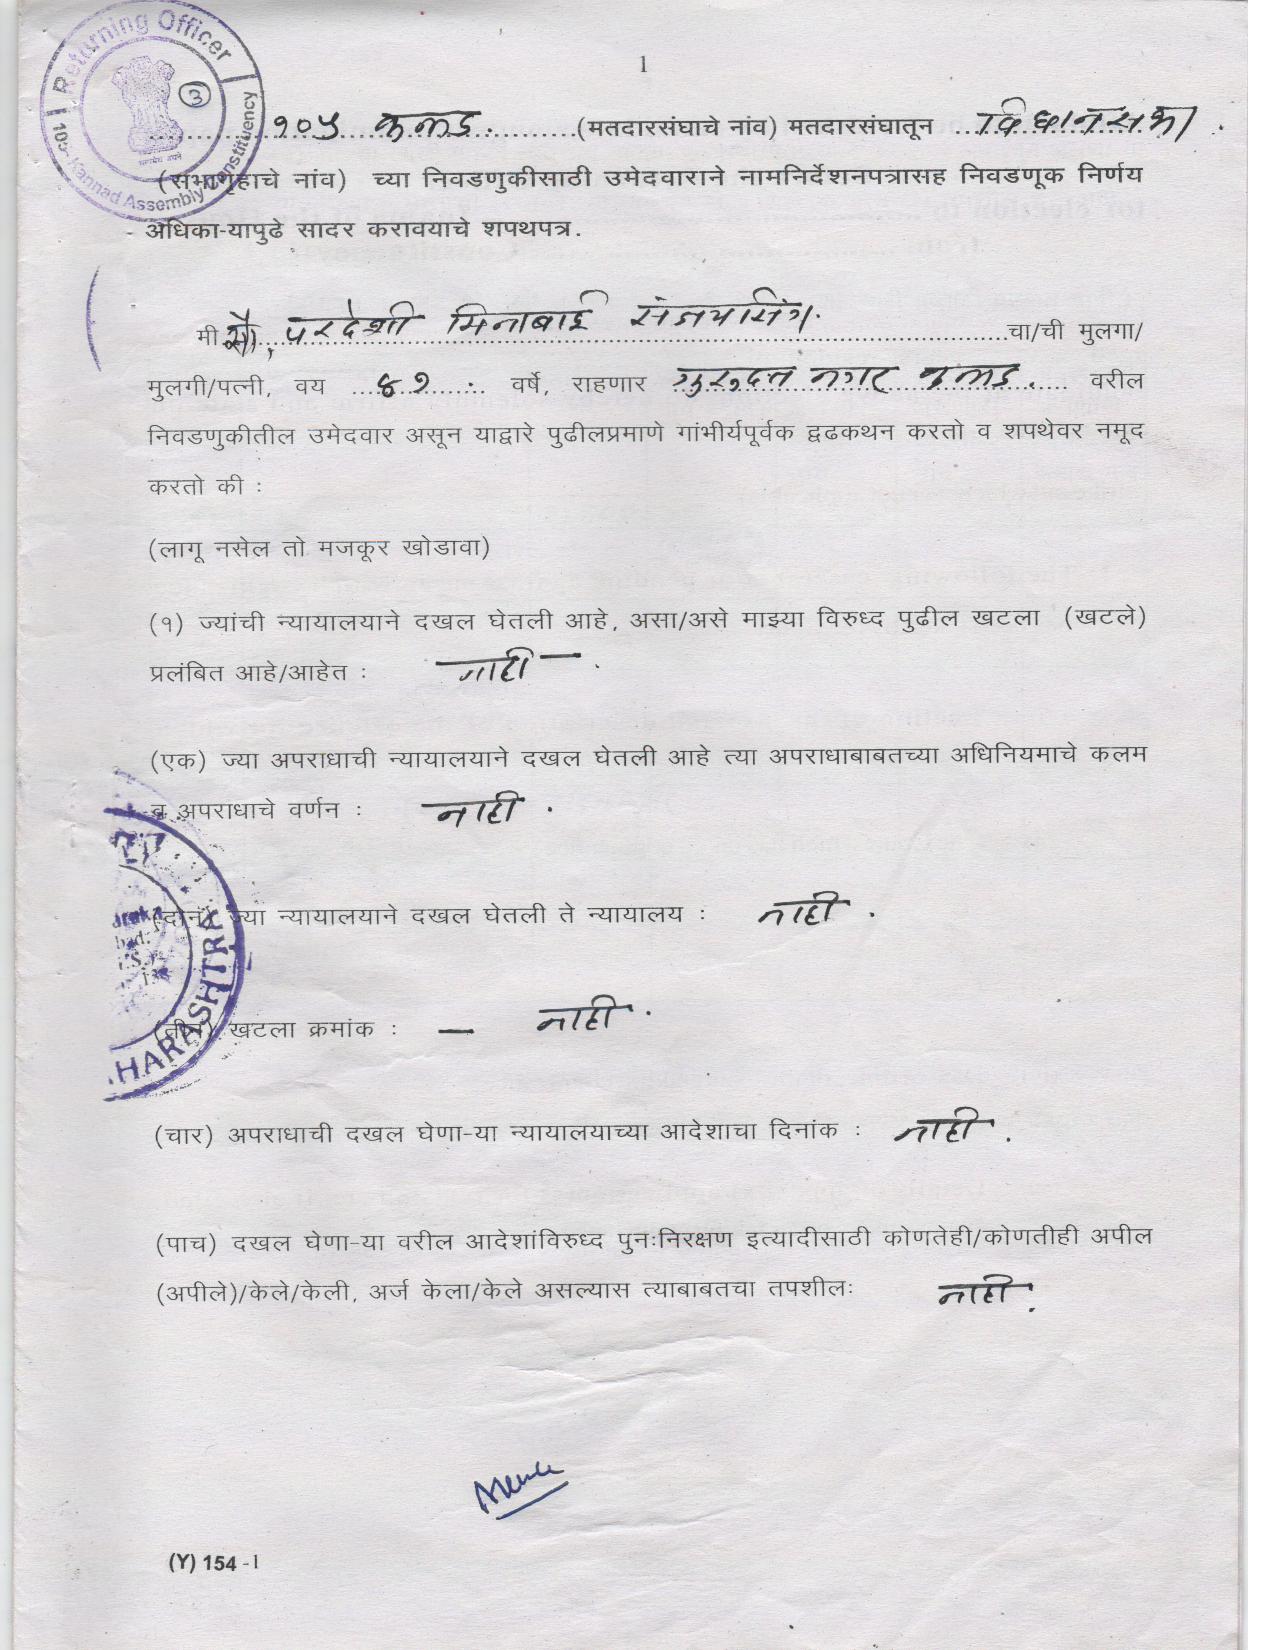 1
Returning Officer
105 - Kannad Assembly Constituency
3
१०५ कन्नड. (मतदारसंघाचे नांव) मतदारसंघातून विधानसभा.
(सभागृहाचे नांव) च्या निवडणुकीसाठी उमेदवाराने नामनिर्देशनपत्रासह निवडणूक निर्णय
अधिका-यापुढे सादर करावयाचे शपथपत्र.
मी सौ. परदेशी मिनाबाई संजयसिंग. चा/ची मुलगा/
मुलगी/पत्नी, वय ४१. वर्षे, राहणार गुरुदत्त नगर कन्नड. वरील
निवडणुकीतील उमेदवार असून याद्वारे पुढीलप्रमाणे गांभीर्यपूर्वक द्वढकथन करतो व शपथेवर नमूद
करतो की :
(लागू नसेल तो मजकूर खोडावा)
(१) ज्यांची न्यायालयाने दखल घेतली आहे, असा/असे माझ्या विरुध्द पुढील खटला (खटले)
प्रलंबित आहे/आहेत : नाही.
(एक) ज्या अपराधाची न्यायालयाने दखल घेतली आहे त्या अपराधाबाबतच्या अधिनियमाचे कलम
व अपराधाचे वर्णन : नाही.
(दोन) ज्या न्यायालयाने दखल घेतली ते न्यायालय : नाही.
(तीन) खटला क्रमांक : — नाही.
HARASHTRA
(चार) अपराधाची दखल घेणा-या न्यायालयाच्या आदेशाचा दिनांक : नाही.
(पाच) दखल घेणा-या वरील आदेशांविरुध्द पुनःनिरक्षण इत्यादीसाठी कोणतेही/कोणतीही अपील
(अपीले)/केले/केली, अर्ज केला/केले असल्यास त्याबाबतचा तपशीलः नाही.
(Y) 154 - I